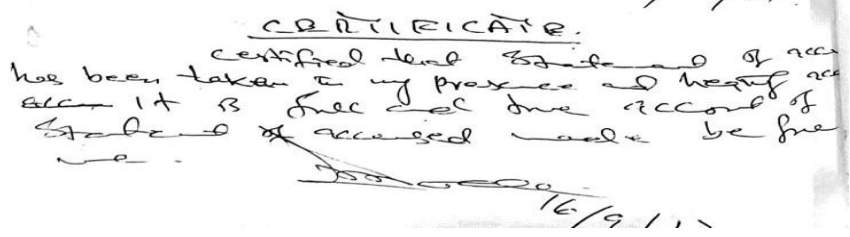 CERTIFICATE.
certified that Statement of accu
has been taken in my presence and hearing acc
it is full and true account of
Statement of accused made before
me.
16/9/1